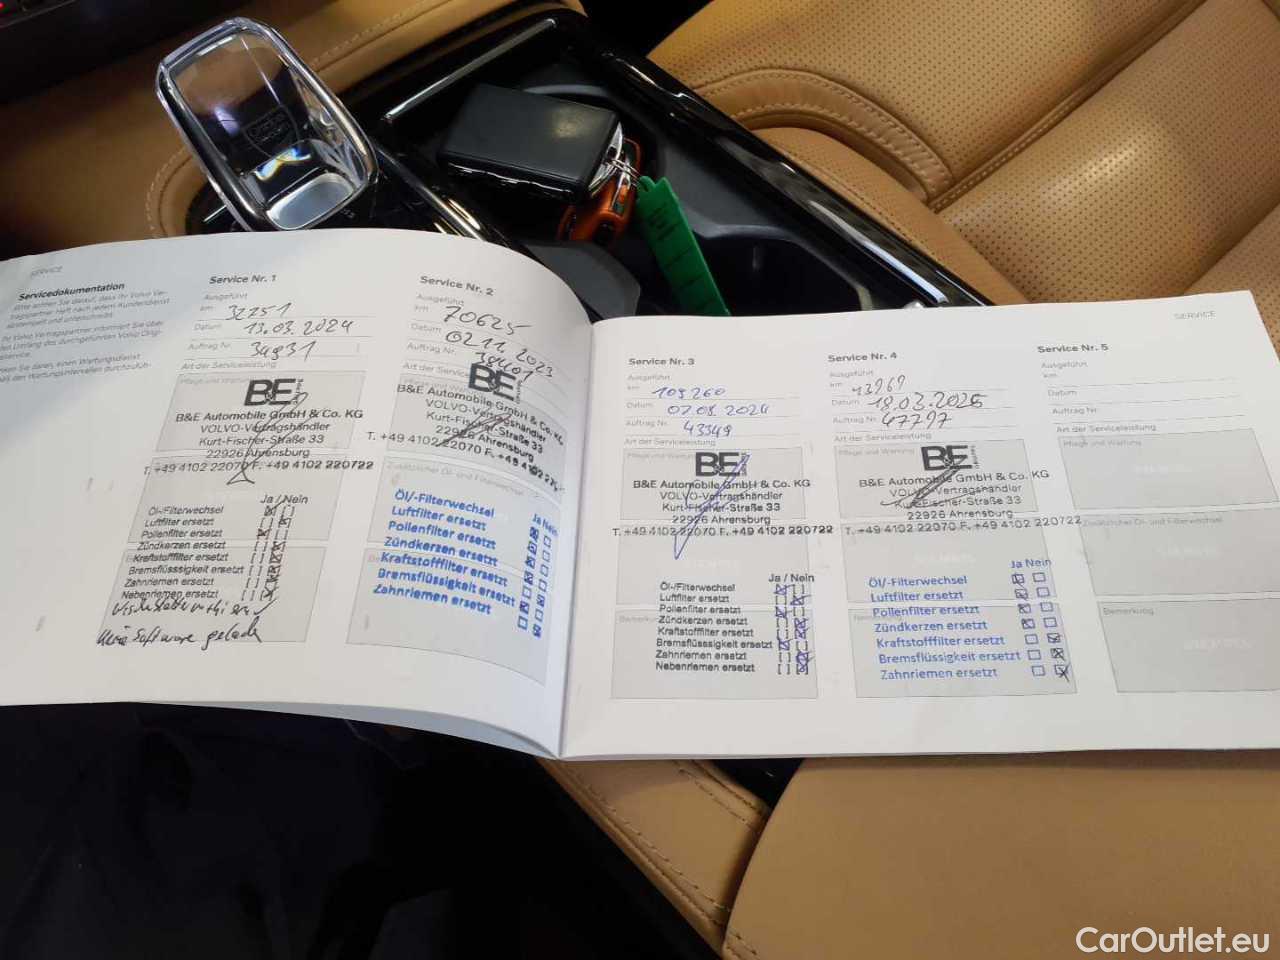 SERVICE
Servicedokumentation
Service Nr. 1
Ausgeführt
km 32251
Datum 13.03.2024
Auftrag Nr. 34931
Art der Serviceleistung
Pflege und Wartung
B&E
B&E Automobile GmbH & Co. KG
VOLVO-Vertragshändler
Kurt-Fischer-Straße 33
22926 Ahrensburg
T. +49 4102 22070 F. +49 4102 220722
Ja / Nein
Öl-/Filterwechsel
Luftfilter ersetzt
Pollenfilter ersetzt
Zündkerzen ersetzt
Kraftstofffilter ersetzt
Bremsflüsssigkeit ersetzt
Zahnriemen ersetzt
Nebenriemen ersetzt
Keine Software geladen
Service Nr. 2
Ausgeführt
km 70625
Datum 02.11.2023
Auftrag Nr. 38401
Art der Service
B&E
B&E Automobile GmbH & Co. KG
VOLVO-Vertragshändler
Kurt-Fischer-Straße 33
22926 Ahrensburg
T. +49 4102 22070 F. +49 4102
Zusätzlicher Öl- und Filterwechsel
Ja Nein
Öl/-Filterwechsel
Luftfilter ersetzt
Pollenfilter ersetzt
Zündkerzen ersetzt
Kraftstofffilter ersetzt
Bremsflüssigkeit ersetzt
Zahnriemen ersetzt
SERVICE
Service Nr. 3
Ausgeführt
km 109260
Datum 07.09.2024
Auftrag Nr. 43349
Art der Serviceleistung
Pflege und Wartung
B&E
B&E Automobile GmbH & Co. KG
VOLVO-Vertragshändler
Kurt-Fischer-Straße 33
22926 Ahrensburg
T. +49 4102 22070 F. +49 4102 220722
Ja / Nein
Öl-/Filterwechsel
Luftfilter ersetzt
Pollenfilter ersetzt
Zündkerzen ersetzt
Kraftstofffilter ersetzt
Bremsflüssigkeit ersetzt
Zahnriemen ersetzt
Nebenriemen ersetzt
Service Nr. 4
Ausgeführt
km
Datum 18.03.2026
Auftrag Nr. 47797
Art der Serviceleistung
Pflege und Wartung
B&E
B&E Automobile GmbH & Co. KG
VOLVO-Vertragshändler
Kurt-Fischer-Straße 33
22926 Ahrensburg
T. +49 4102 22070 F. +49 4102 220722
Ja Nein
Öl/-Filterwechsel
Luftfilter ersetzt
Pollenfilter ersetzt
Zündkerzen ersetzt
Kraftstofffilter ersetzt
Bremsflüssigkeit ersetzt
Zahnriemen ersetzt
Service Nr. 5
Ausgeführt
km
Datum
Auftrag Nr.
Art der Serviceleistung
Pflege und Wartung
Zusätzlicher Öl- und Filterwechsel
Bemerkung
CarOutlet.eu